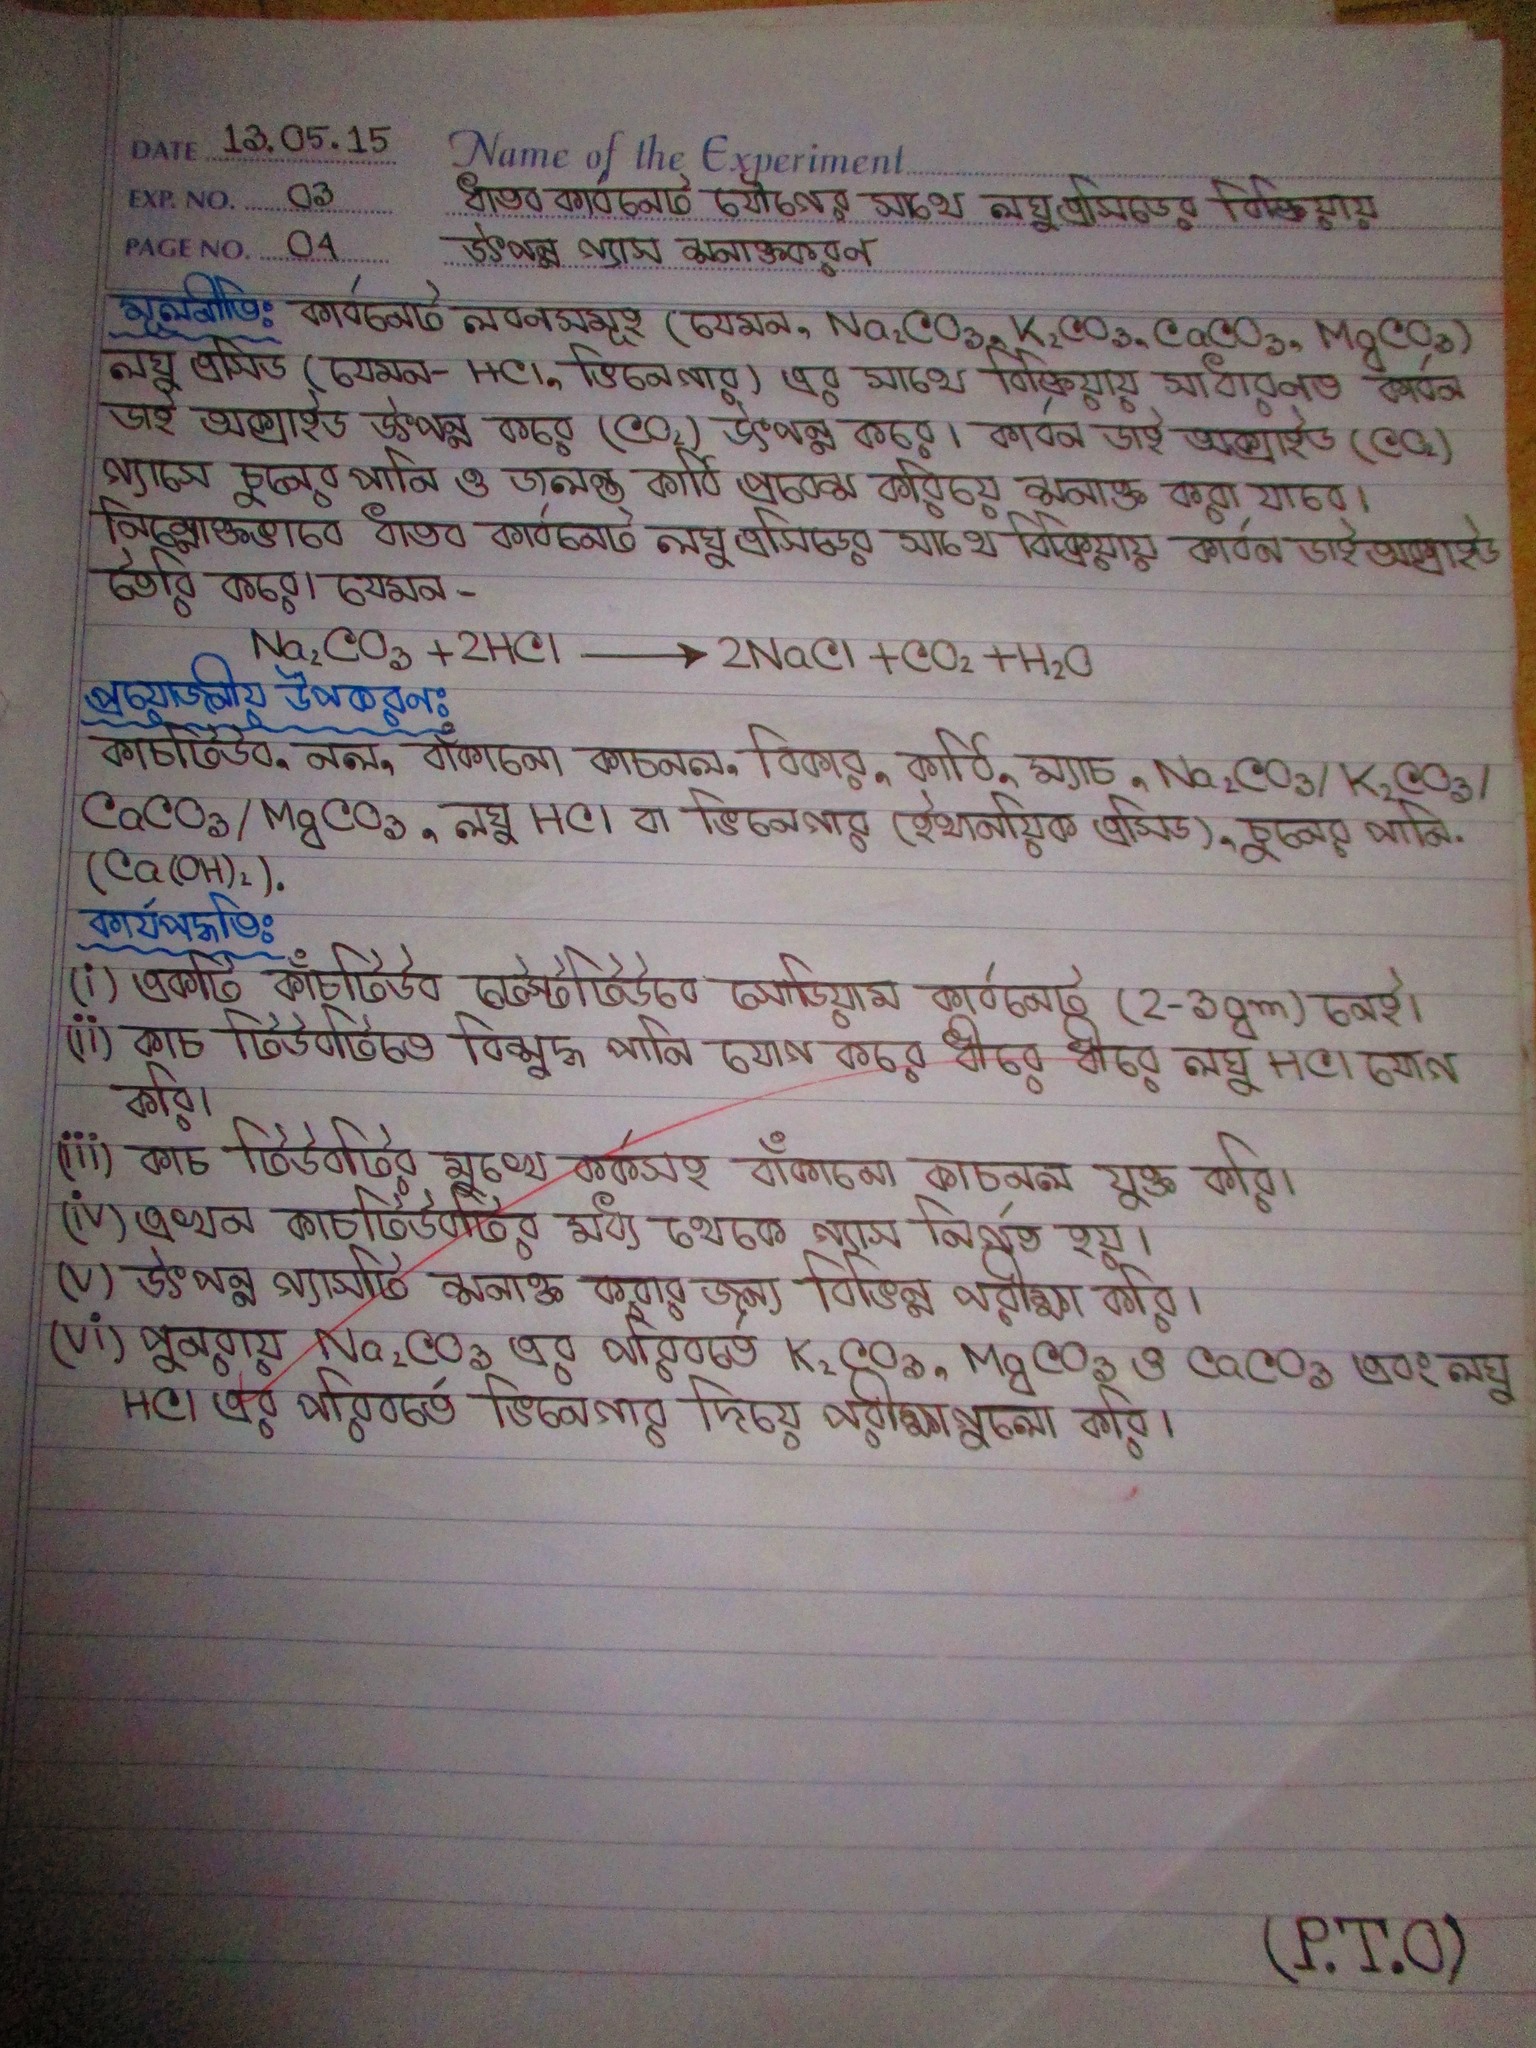 DATE 13.05.15 Name of the Experiment
EXP. NO. 03 ধাতব কার্বনেট যৌগের সাথে লঘু এসিডের বিক্রিয়ায়
PAGE NO. 04 উৎপন্ন গ্যাস শনাক্তকরন
মূলনীতিঃ কার্বনেট লবনসমূহ (যেমন, Na₂CO₃, K₂CO₃, CaCO₃, MgCO₃)
লঘু এসিড (যেমন- HCl, ভিনেগার) এর সাথে বিক্রিয়ায় সাধারনত কার্বন
ডাই অক্সাইড উৎপন্ন করে (CO₂) উৎপন্ন করে। কার্বন ডাই অক্সাইড (CO₂)
গ্যাসে চুনের পানি ও জলন্ত কাঠি প্রবেশ করিয়ে শনাক্ত করা যাবে।
নিম্নোক্তভাবে ধাতব কার্বনেট লঘু এসিডের সাথে বিক্রিয়ায় কার্বন ডাই অক্সাইড
তৈরি করে। যেমন -
Na₂CO₃ + 2HCl ⟶ 2NaCl + CO₂ + H₂O
প্রয়োজনীয় উপকরনঃ
কাচটিউব, নল, বাঁকানো কাচনল, বিকার, কাঠি, ম্যাচ, Na₂CO₃/ K₂CO₃/
CaCO₃/ MgCO₃, লঘু HCl বা ভিনেগার (ইথানয়িক এসিড), চুনের পানি.
(Ca(OH)₂).
কার্যপদ্ধতিঃ
(i) একটি কাঁচটিউব টেস্টটিউবে সোডিয়াম কার্বনেট (2-3gm) নেই।
(ii) কাচ টিউবটিতে বিশুদ্ধ পানি যোগ করে ধীরে ধীরে লঘু HCl যোগ
করি।
(iii) কাচ টিউবটির মুখে কর্কসহ বাঁকানো কাচনল যুক্ত করি।
(iv) এখন কাচটিউবটির মধ্য থেকে গ্যাস নির্গত হয়।
(v) উৎপন্ন গ্যাসটি শনাক্ত করার জন্য বিভিন্ন পরীক্ষা করি।
(vi) পুনরায় Na₂CO₃ এর পরিবর্তে K₂CO₃, MgCO₃ ও CaCO₃ এবং লঘু
HCl এর পরিবর্তে ভিনেগার দিয়ে পরীক্ষাগুলো করি।
(P.T.O)